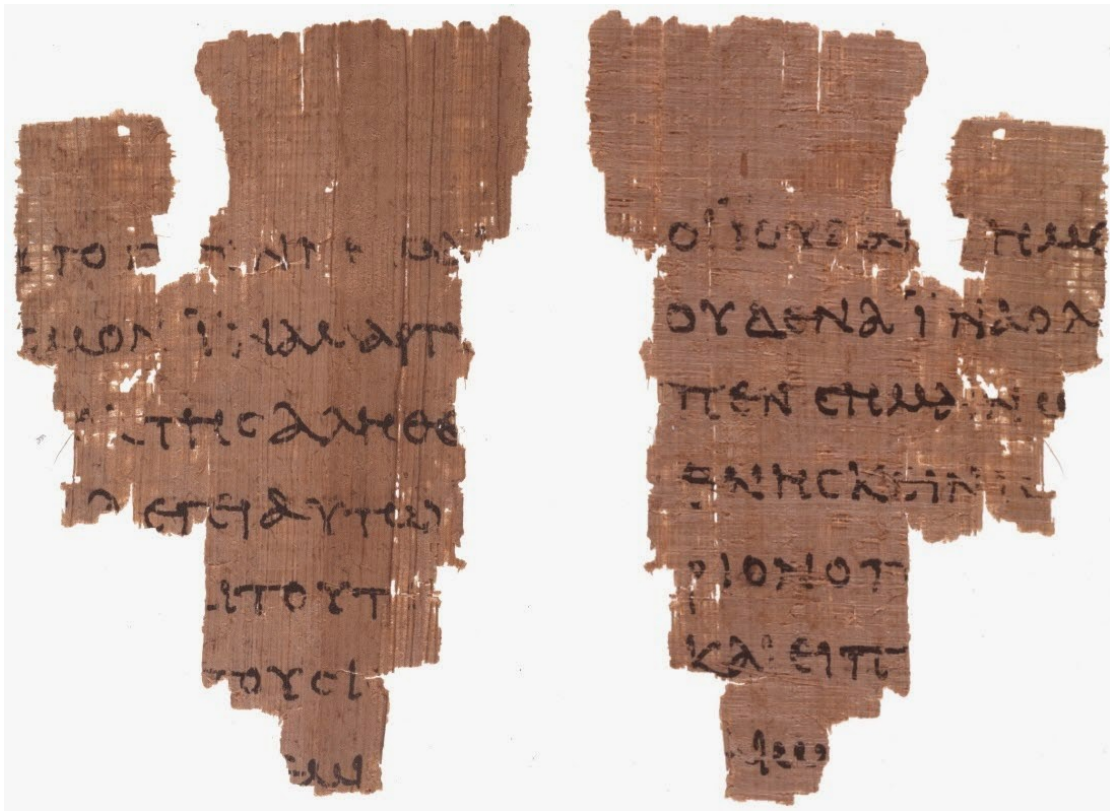 ΤΟ Γ ΓΕΝΝΗΜΑΙ
ϹΜΟΝ ΪΝΑ ΜΑΡΤΥ
ΤΗϹ ΑΛΗΘΕ
ΛΕΓΕΙ ΑΥΤΩ
ΑΙ ΤΟΥΤ
ΤΟΥϹ Ι
ΕΜΙ
ΟΙ ΪΟΥΔΑΙ ΗΜΕ
ΟΥΔΕΝΑ ΪΝΑ Ο Λ
ΠΕΝ ϹΗΜΑΙΝΩ
ΘΝΗϹΚΕΙΝ ΙϹ
ΡΙΟΝ Ο Π
ΚΑΙ ΕΙΠ
ΑΙΩ